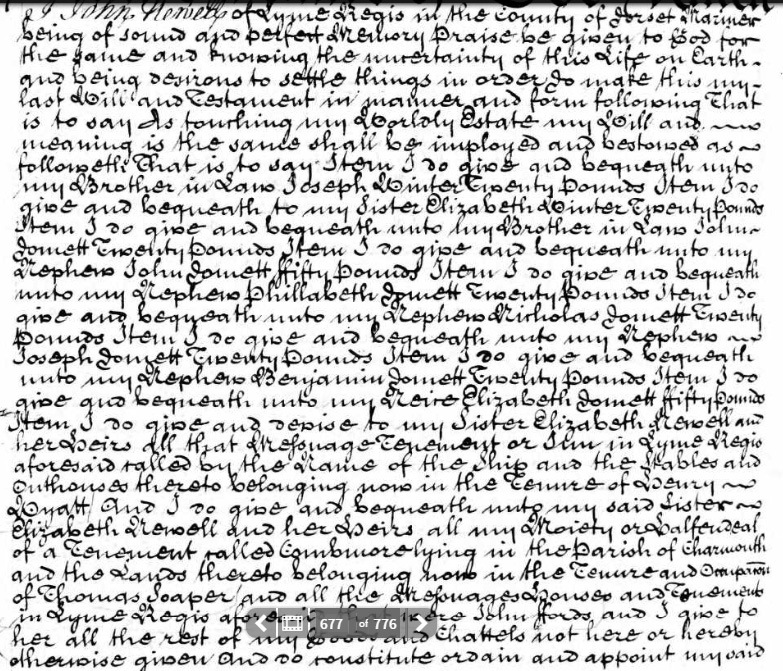 I John Newell of Lyme Regis in the County of Dorset Mariner
being of sound and perfect Memory Praise be given to God for
the same and knowing the uncertainty of this Life on Earth
and being desirous to settle things in order Do make this my
last Will and Testament in manner and form following That
is to say As touching my Worldly Estate my Will and
meaning is the same shall be imployed and bestowed as
followeth That is to say Item I do give and bequeath unto
my Brother in Law Joseph Winter Twenty Pounds Item I do
give and bequeath to my Sister Elizabeth Winter Twenty Pounds
Item I do give and bequeath unto my Brother in Law John
Jomett Twenty Pounds Item I do give and bequeath unto my
Nephew John Jomett ffifty Pounds Item I do give and bequeath
unto my Nephew Phillabeth Jomett Twenty Pounds Item I do
give and bequeath unto my Nephew Nicholas Jomett Twenty
Pounds Item I do give and bequeath unto my Nephew
Joseph Jomett Twenty Pounds Item I do give and bequeath
unto my Nephew Benjamin Jomett Twenty Pounds Item I do
give and bequeath unto my Neice Elizabeth Jomett ffifty Pounds
Item I do give and devise to my Sister Elizabeth Newell and
her Heirs All that Messuage Tenement or Inn in Lyme Regis
aforesaid called by the Name of the Ship and the Stables and
Outhouses thereto belonging now in the Tenure of Henry
Wyatt And I do give and bequeath unto my said Sister
Elizabeth Newell and her Heirs all my Moiety or Halfendeal
of a Tenement called Combmore lying in the Parish of Charmouth
and the Lands thereto belonging now in the Tenure and Occupacon
of Thomas Soaper and all the Messuages Houses and Tenements
in Lyme Regis that were John ffords and I give to
her all the rest of my Goods and Chattels not here or hereby
otherwise given And do constitute ordain and appoint my said
677 of 776